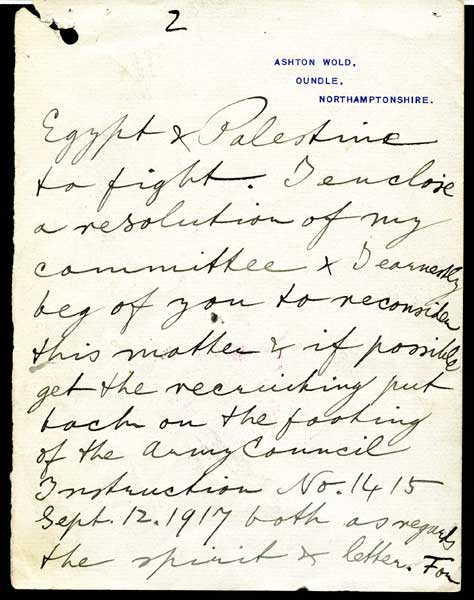 2
ASHTON WOLD,
OUNDLE,
NORTHAMPTONSHIRE.
Egypt & Palestine
to fight. I enclose
a resolution of my
committee & I earnestly
beg of you to reconsider
this matter & if possible
get the recruiting put
back on the footing
of the Army Council
Instruction No. 1415
Sept. 12. 1917 both as regards
the spirit & letter. For